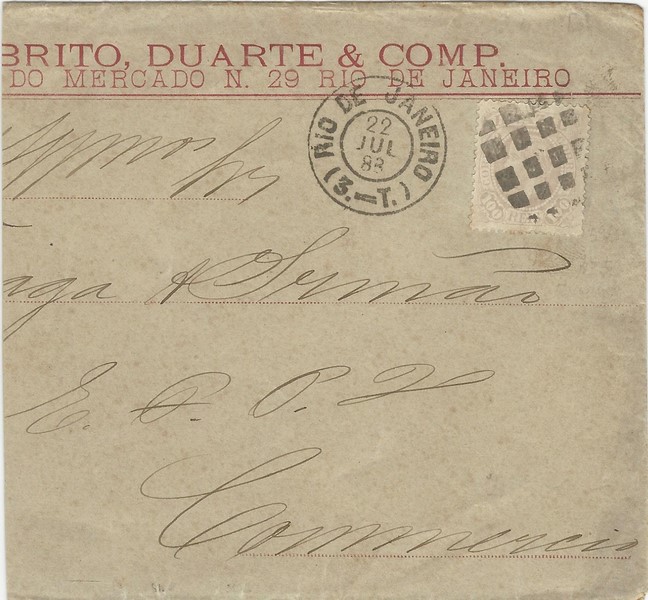 BRITO, DUARTE & COMP.
DO MERCADO N. 29 RIO DE JANEIRO
RIO DE JANEIRO
22
JUL
88
(3.—T.)
100 REIS 100
& Irmão
E. F. P. II
Commercio